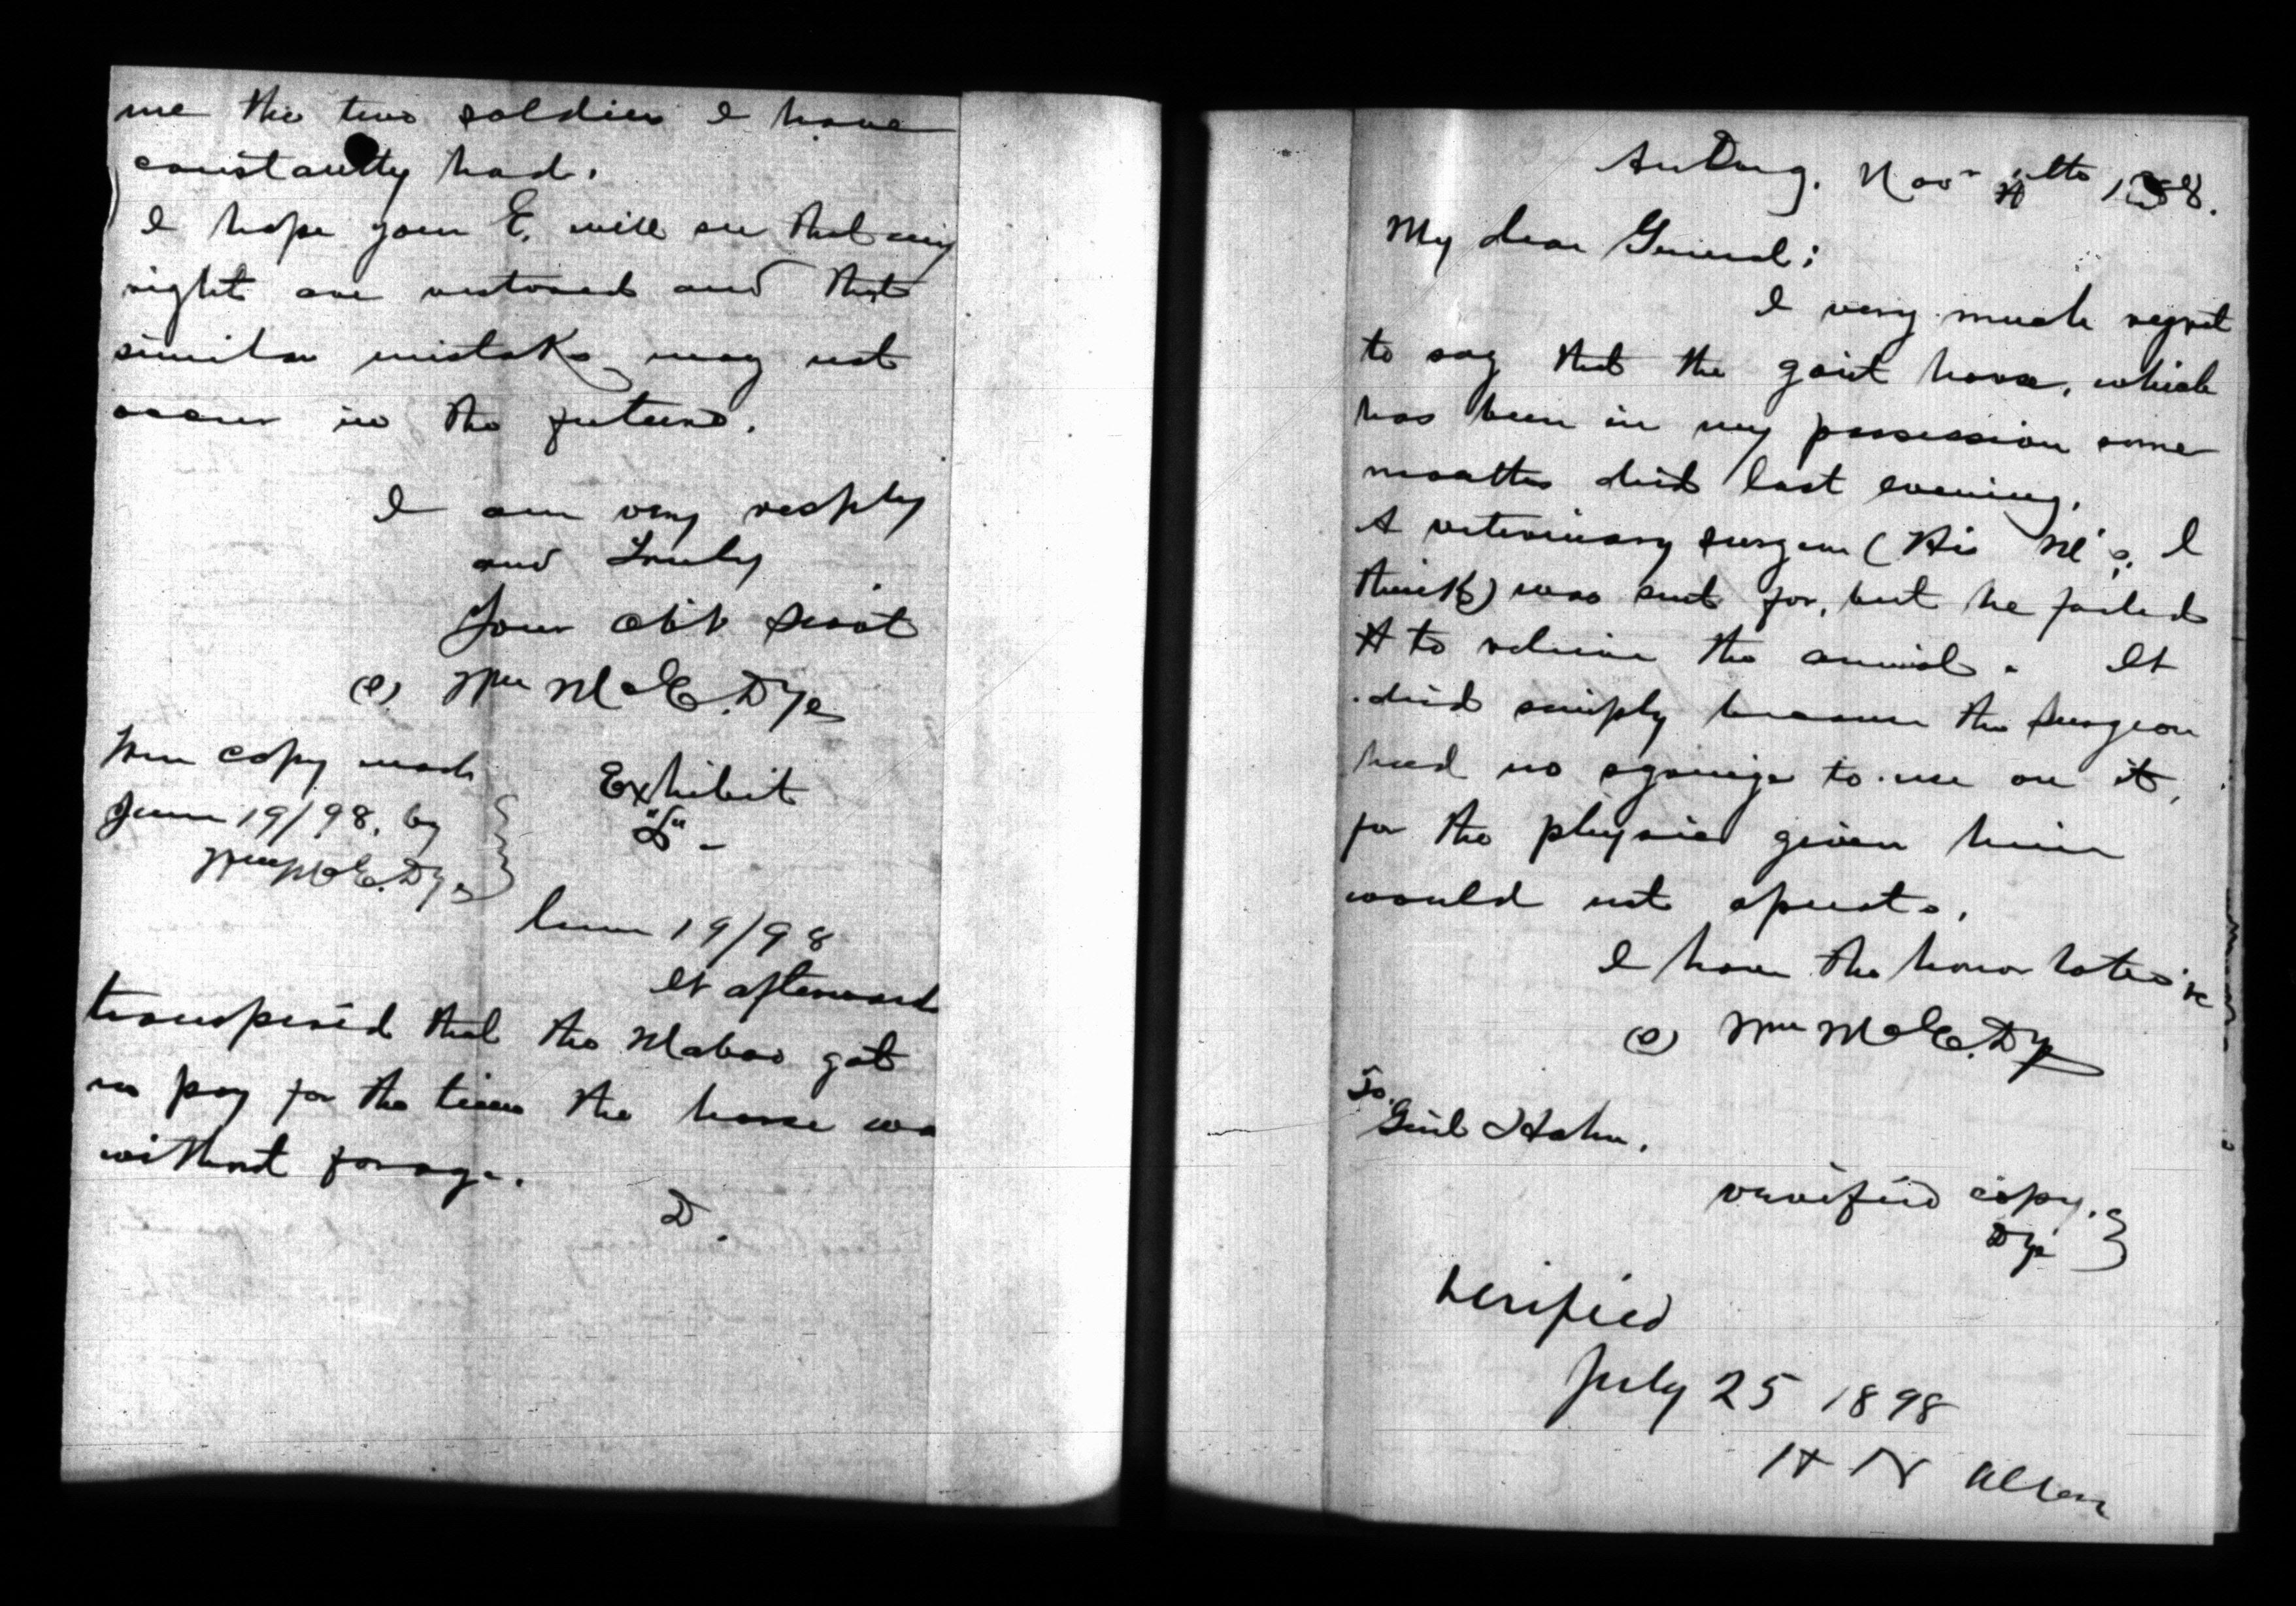 me the two soldiers I have
constantly had.
I hope your E. will see that my
right are restored and that
similar mistake may not
occur in the future.
I am very resply
and Truly
Your obt servt
(s) Wm McE. Dye
True copy made
June 19/98, by
Wm McE. Dye
Exhibit
"S" -
June 19/98
It afterward
transpired that the Maboo got
no pay for the time the horse wa
without forage.
D.
Nov 1888.
My dear General;
I very much regret
to say that the govt horse, which
has been in my possession some
months died last evening.
A veterinary surgeon (His M's, I
think) was sent for, but he failed
to relieve the animal. It
died simply because the surgeon
had no syringe to use on it,
for the physic given him
would not operate.
I have the honor to be
(s) Wm McE. Dye
To.
Genl Hahn.
verified copy.
Dye
Verified
July 25 1898
H N Allen